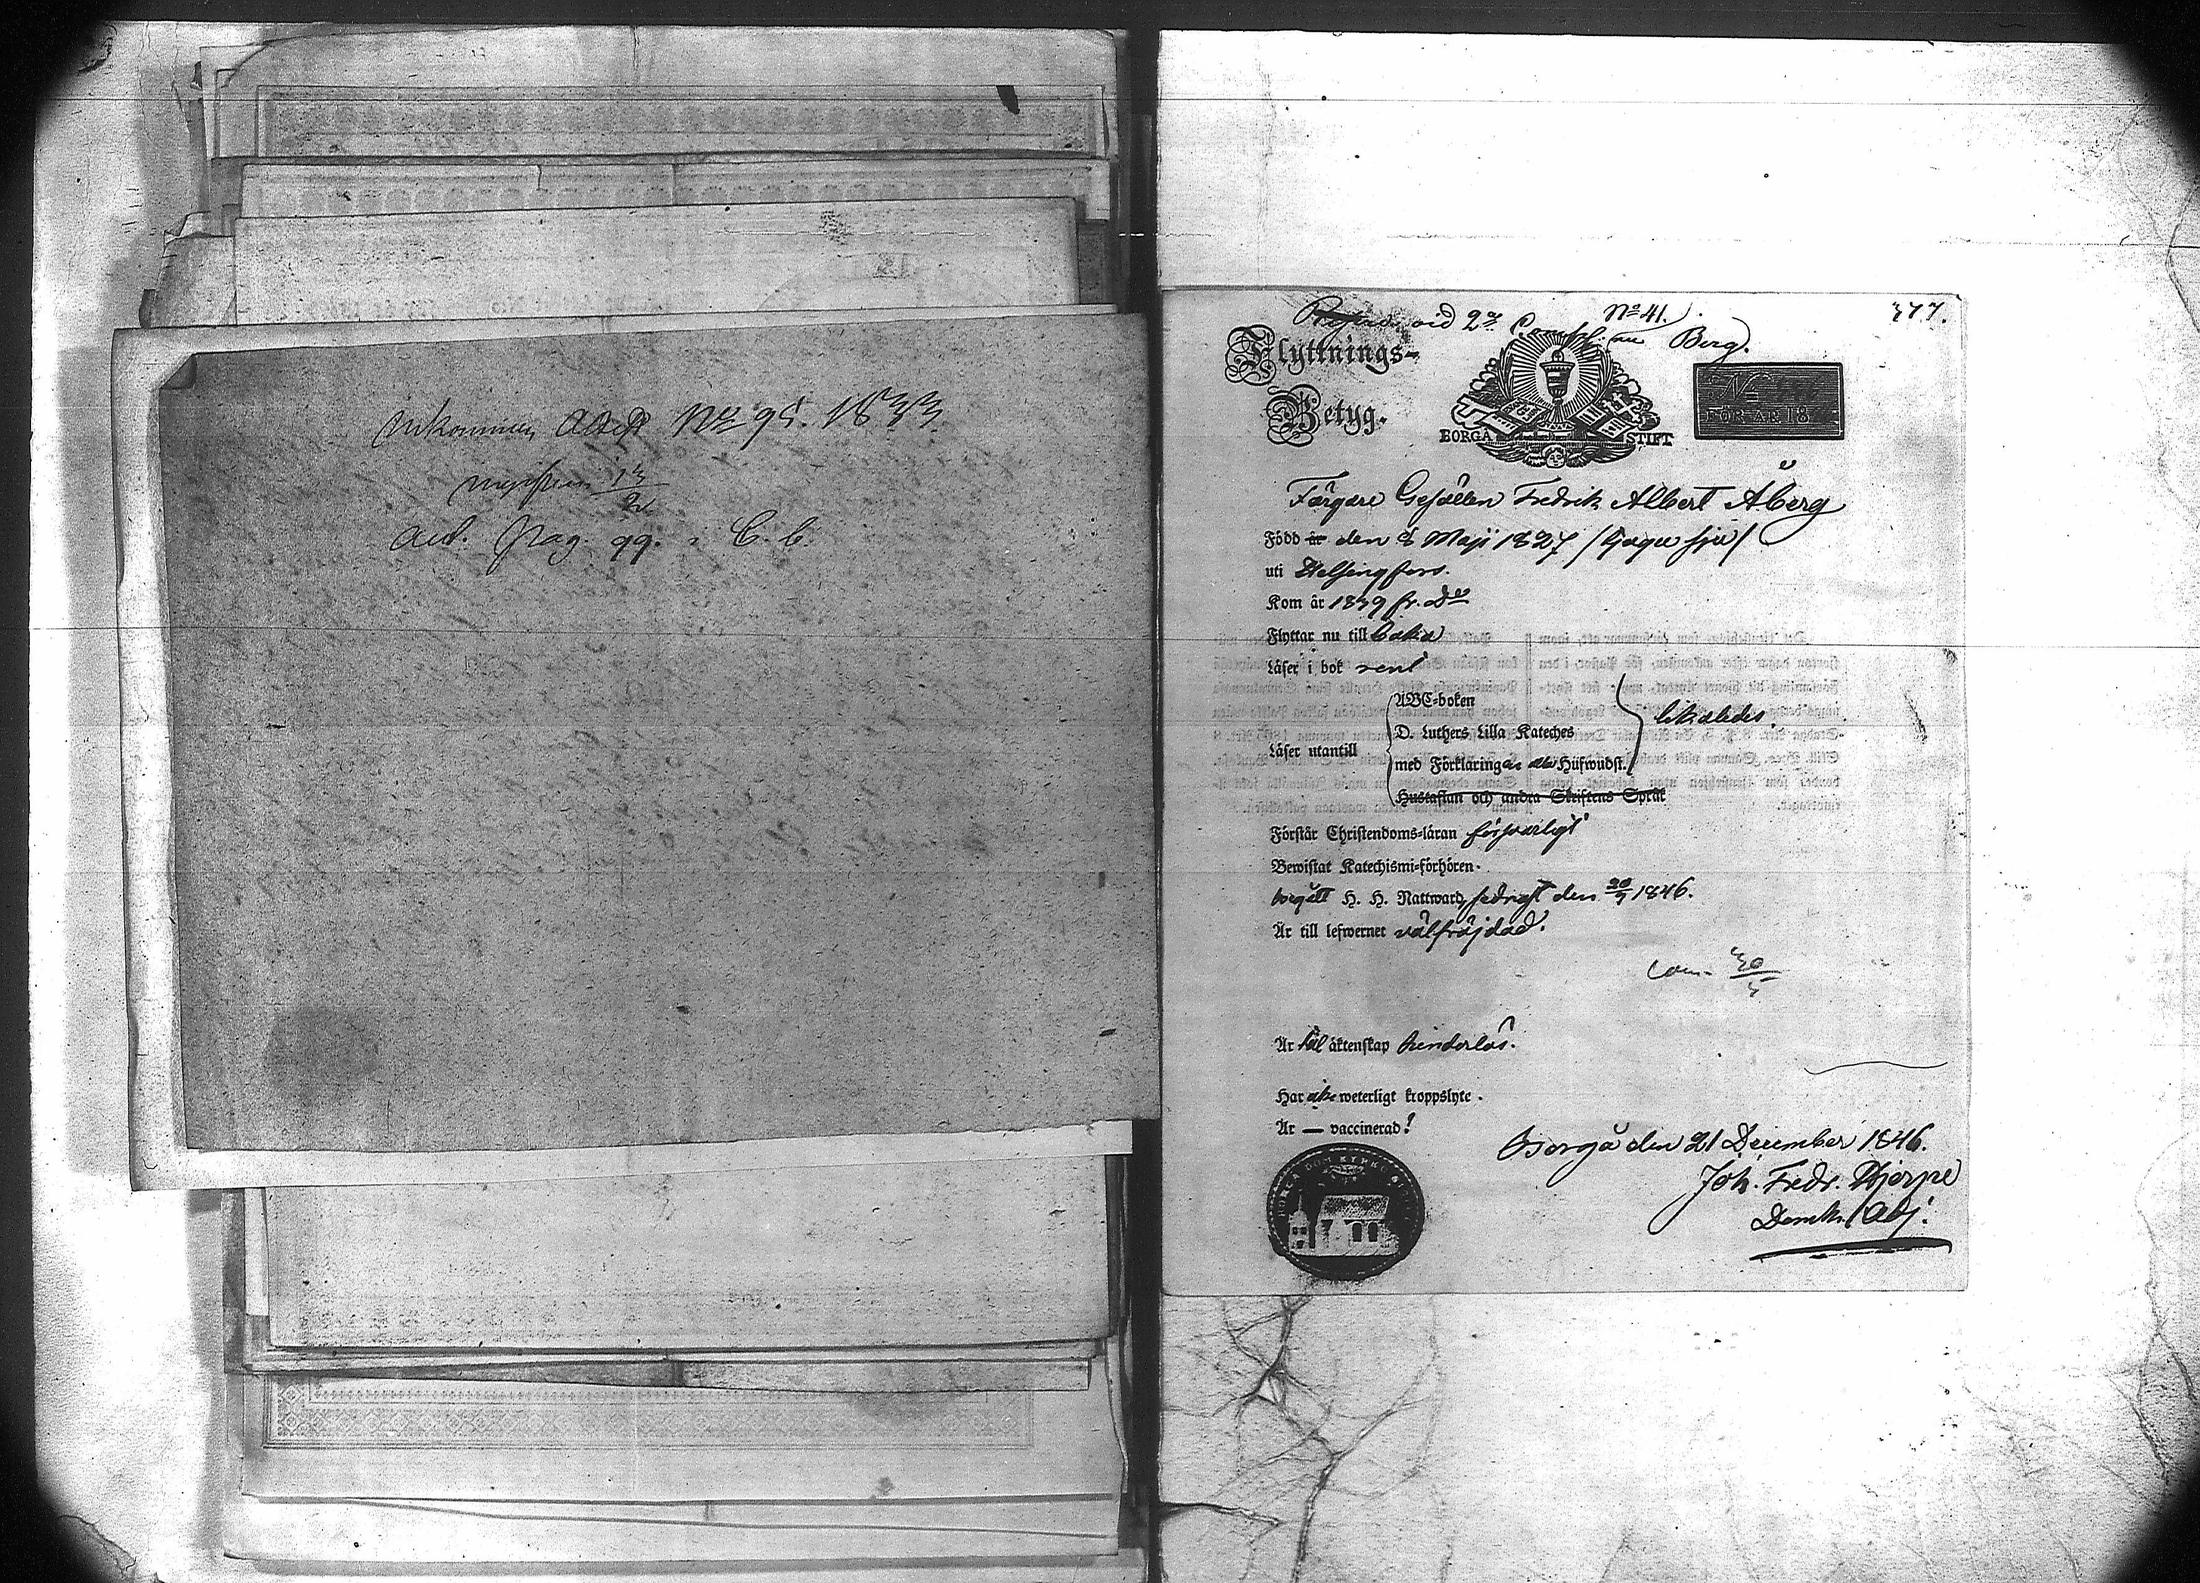 Ankommen Attest No 95. 1833
ant. pag. 99. C. b.
No 41.
377.
vid 2dra Comp. Berg.
Flyttnings-
Betyg.
BORGÅ STIFT
No
FÖR ÅR 18
Färgare Gesällen Fredrik Albert Åberg
Född år den 8 Maji 1827 /tjugu sju/
uti Helsingfors.
Kom år 1839 fr. Do
Flyttar nu till
Läser i bok rent
ABC-boken
D. Luthers Lilla Kateches
Läser utantill
med Förklaringar Husswudst.
likaledes.
Hustaflan och andra Skriftens Språk
Förstår Christendoms-läran försvarligt
Bewistat Katechismi-förhören.
begått H. H. Nattward, sednast den 20/9 1846.
Är till lefwernet välfräjdad.
Är till äktenskap hinderlös.
Har icke weterligt kroppslyte.
Är — vaccinerad!
Borgå den 21 December 1846.
Joh. Fredr. Hjerpe
Domk. Adj.